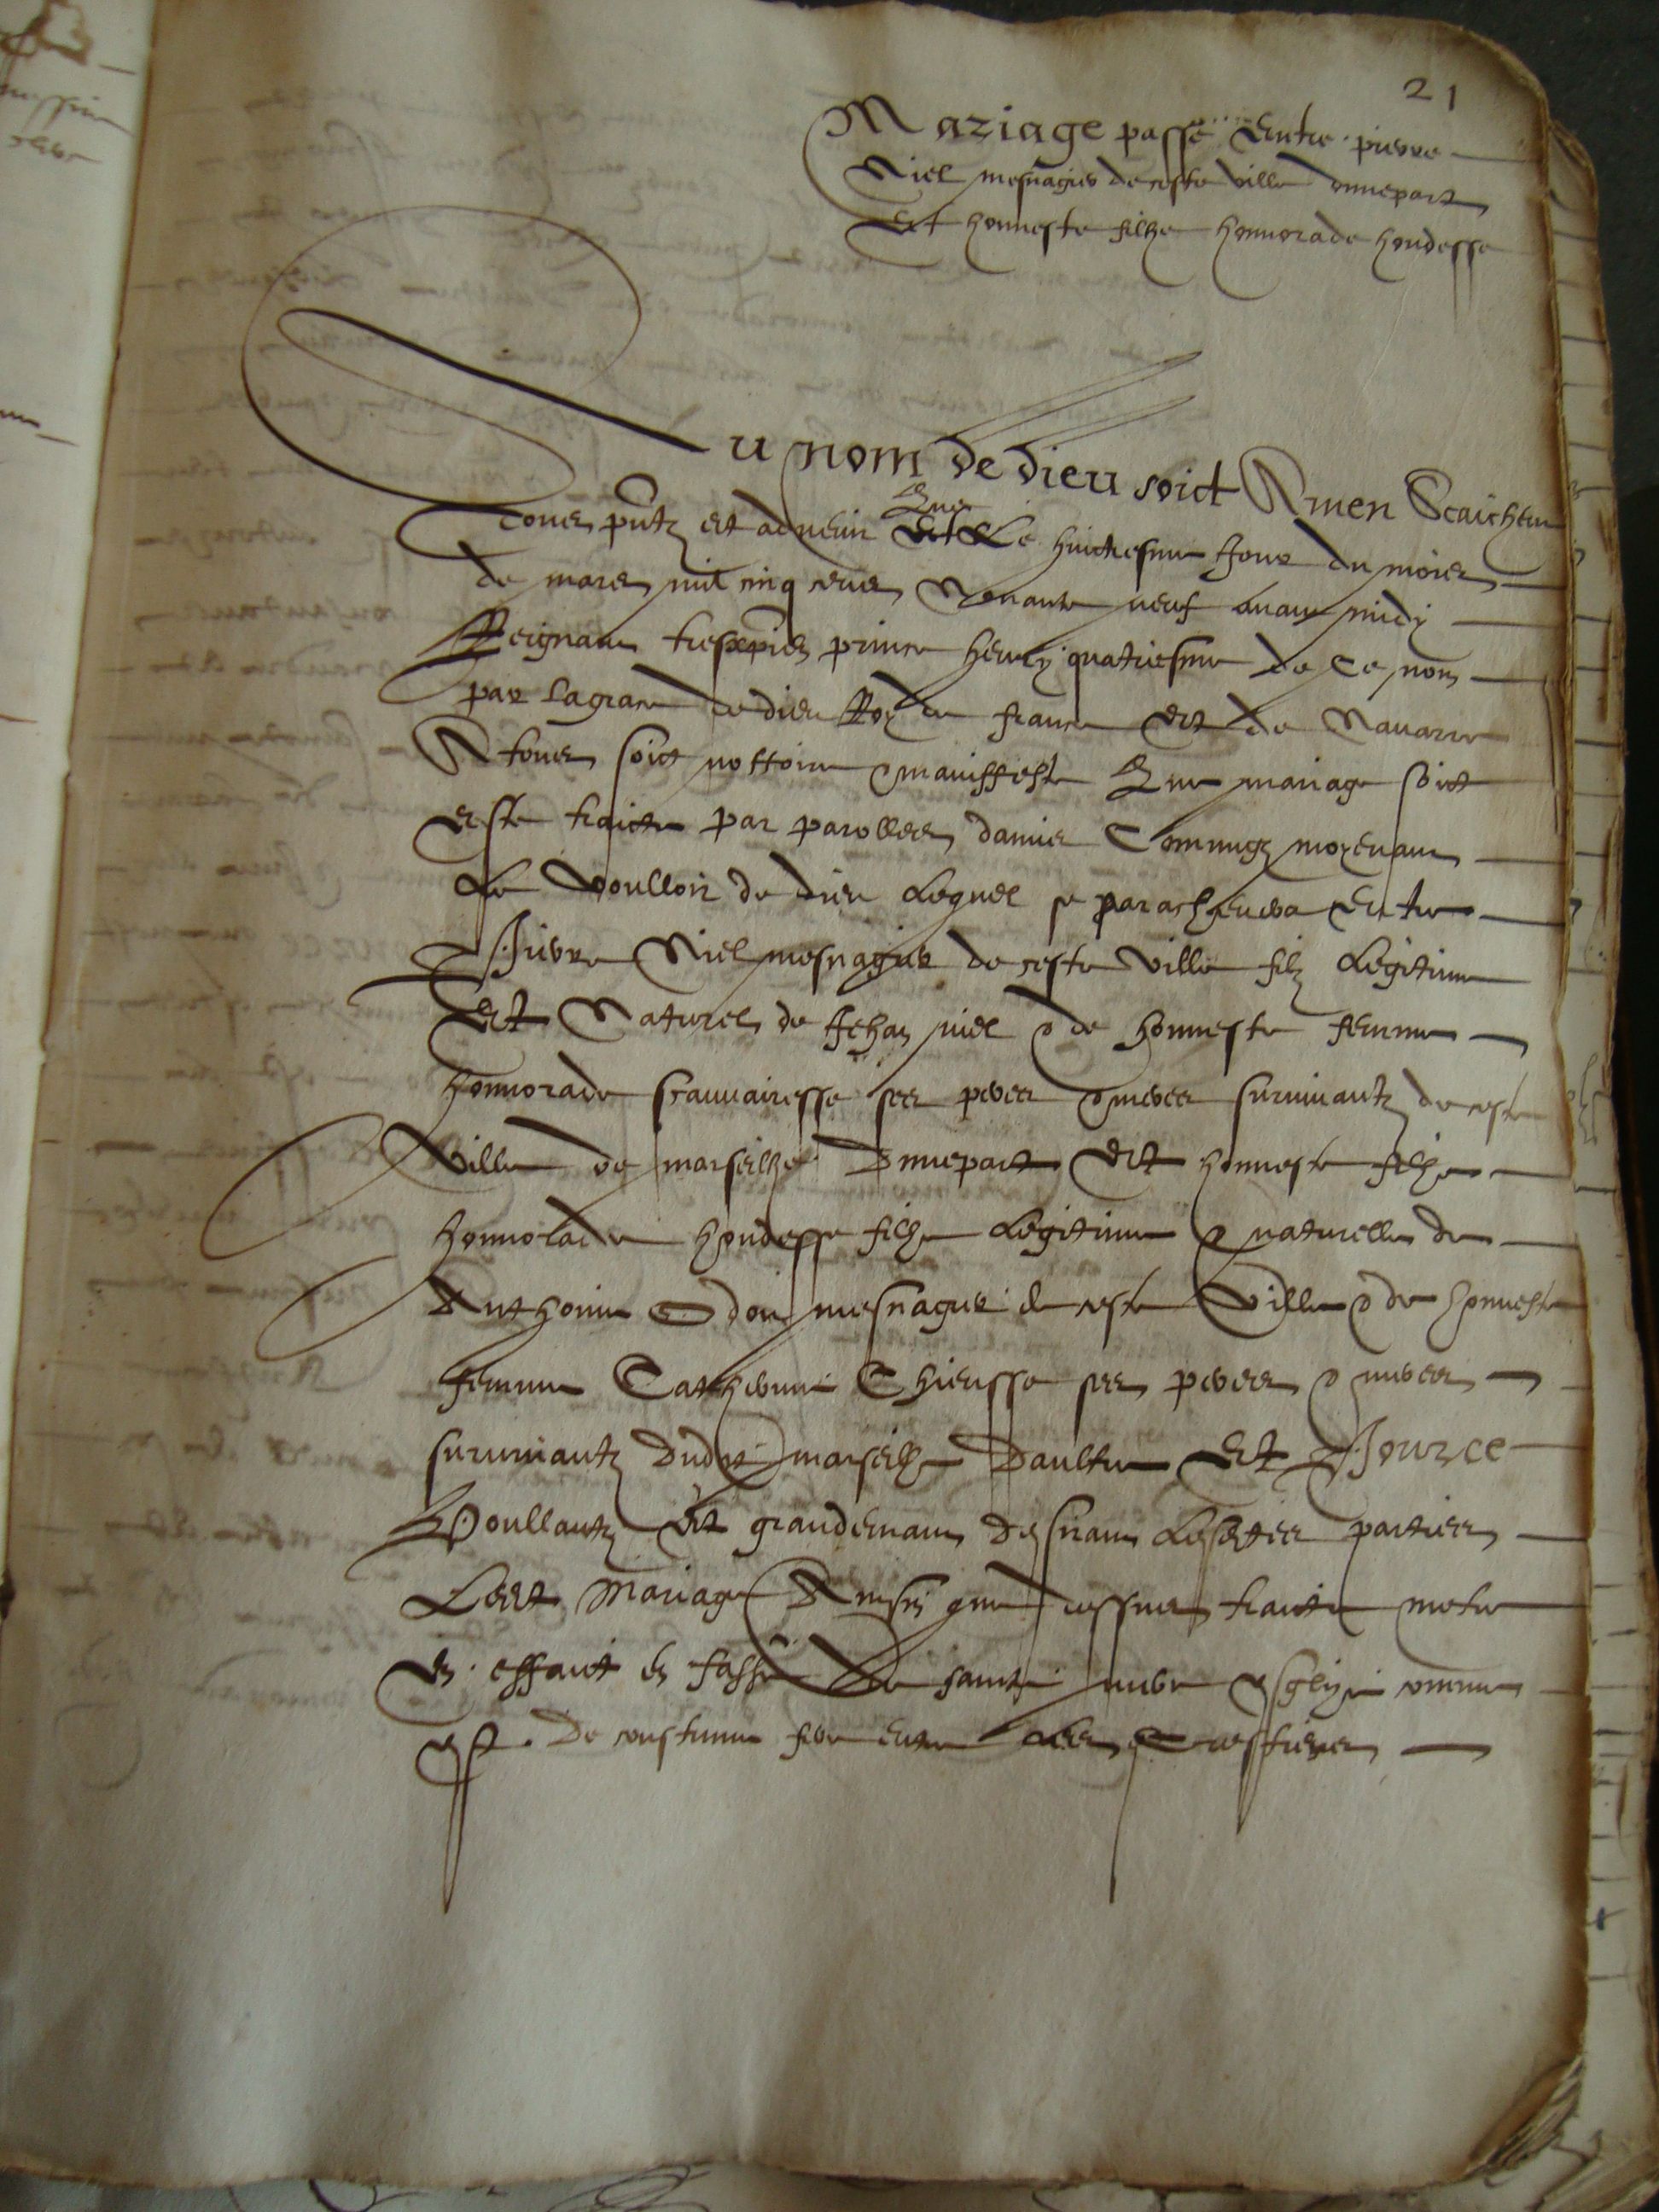 21
Mariage passé Entre pierre
Niel mesnagier de ceste ville dunepart
Et honneste filhe honnorade hondesse
Au nom de dieu soict Amen Scaichent
Tous pntz et advenir Que Le huictiesme Jour du mois
de mars mil cinq cens Nonante neuf avant midy
Reignant tresxpien prince henry quatriesme de Ce nom
par la grace de dieu Roy de france Et de Navarre
A tous soict nottoire & maniffeste Que mariage soict
Este traicte par parolles danves Comungz moyenant
Le Voulloir de dieu Lequel se parachevera Entre
Pierre Niel mesnagier de ceste ville filz Legitime
Et Naturel de Jehan niel & de honneste femme
honnorade scauvairesse ses peres & meres survivantz de ceste
Ville de marseilhe Dunepart Et honneste filhe
honnorade hondesse filhe Legitime & naturelle de
Anthoine Odou mesnagier de ceste Ville & de honneste
femme Catherine Chieusse ses peres & meres
survivantz Dudict marseilhe Daultre Et Pource
Voullantz Et grandemant Desirant Lesdictes parties
Lect Mariage Ainsin que dessus traicte metre
En effaict en fasse De saincte mere Esglize comme
Est De coustume fere entre Les Crestiens